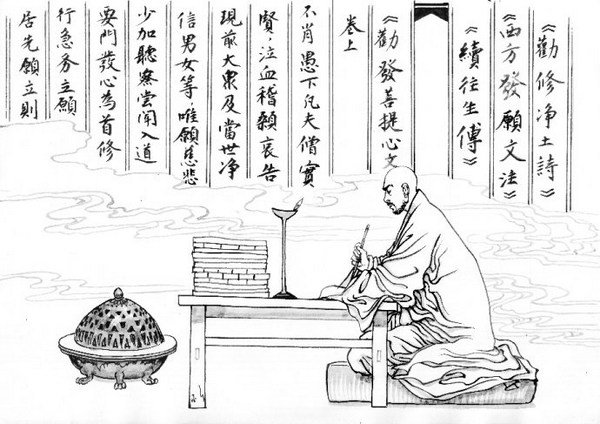 《勸修净土詩》
《西方發願文法》
《續往生傳》
《勸發菩提心文
卷上
不肖愚下凡夫僧實
賢，泣血稽顙哀告
現前大衆及當世净
信男女等，唯願慈悲
少加聽察嘗聞入道
要門發心為首修
行急务立願
居先願立則